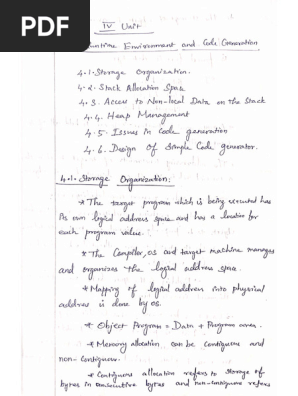 PDF
IV Unit
Runtime Environment and Code Generation
4.1. Storage Organization.
4.2. Stack Allocation Space
4.3. Access to Non-local Data on the Stack
4.4. Heap Management
4.5. Issues in Code generation
4.6. Design of Simple Code generator.
4.1. Storage Organization:
* The target program which is being executed has
its own logical address space and has a location for
each program value.
* The Compiler, OS and target machine manages
and organizes the logical address space.
* Mapping of logical address into physical
address is done by OS.
* Object Program = Data + Program area.
* Memory allocation can be Contiguous and
non-Contiguous.
* Contiguous allocation refers to storage of
bytes in consecutive bytes and non-contiguous refers